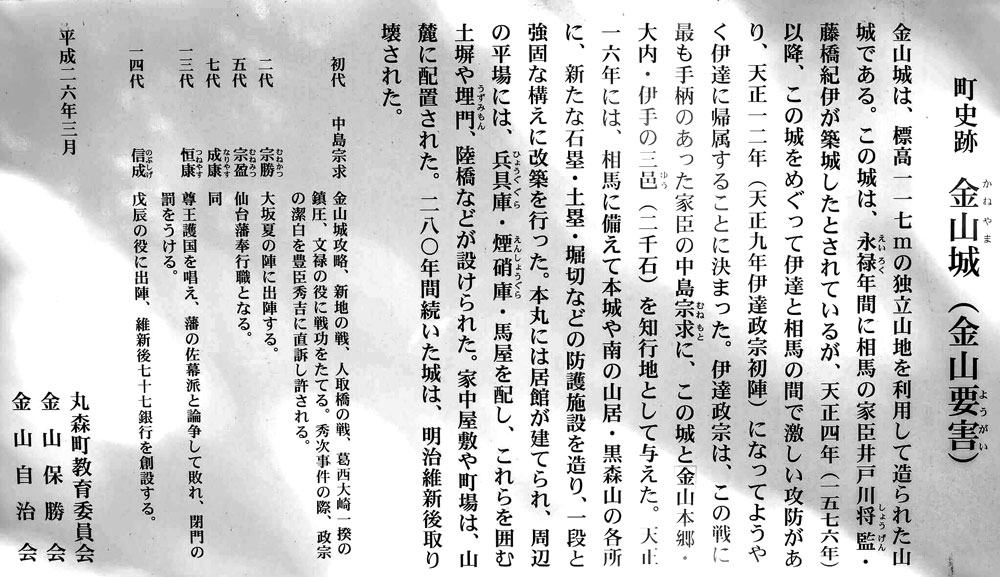 町史跡 金山城（金山要害）
金山城は、標高一一七ｍの独立山地を利用して造られた山
城である。この城は、永禄年間に相馬の家臣井戸川将監・
藤橋紀伊が築城したとされているが、天正四年（一五七六年）
以降、この城をめぐって伊達と相馬の間で激しい攻防があ
り、天正一二年（天正九年伊達政宗初陣）になってようや
く伊達に帰属することに決まった。伊達政宗は、この戦に
最も手柄のあった家臣の中島宗求に、この城と「金山本郷・
大内・伊手の三邑（二千石）を知行地として与えた。天正
一六年には、相馬に備えて本城や南の山居・黒森山の各所
に、新たな石塁・土塁・堀切などの防護施設を造り、一段と
強固な構えに改築を行った。本丸には居館が建てられ、周辺
の平場には、兵具庫・煙硝庫・馬屋を配し、これらを囲む
土塀や埋門、陸橋などが設けられた。家中屋敷や町場は、山
麓に配置された。二八〇年間続いた城は、明治維新後取り
壊された。
初代 中島宗求 金山城攻略、新地の戦、人取橋の戦、葛西大崎一揆の
鎮圧、文禄の役に戦功をたてる。秀次事件の際、政宗
の潔白を豊臣秀吉に直訴し許される。
二代 宗勝 大坂夏の陣に出陣する。
五代 宗盈 仙台藩奉行職となる。
七代 成康 同
一三代 恒康 尊王護国を唱え、藩の佐幕派と論争して敗れ、閉門の
罰をうける。
一四代 信成 戊辰の役に出陣、維新後七十七銀行を創設する。
平成二六年三月
丸森町教育委員会
金山保勝会
金山自治会